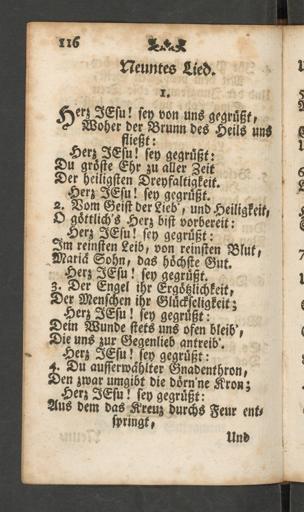 116
Neuntes Lied.
1.
Herz JEsu! sey von uns gegrüßt,
Woher der Brunn des Heils uns
fließt:
Herz JEsu! sey gegrüßt:
Du gröste Ehr zu aller Zeit
Der heiligsten Dreyfaltigkeit.
Herz JEsu! sey gegrüßt.
2. Vom Geist der Lieb, und Heiligkeit,
O göttlich's Herz bist vorbereit:
Herz JEsu! sey gegrüßt:
Im reinsten Leib, von reinsten Blut,
Mariä Sohn, das höchste Gut.
Herz JEsu! sey gegrüßt.
3. Der Engel ihr Ergötzlichkeit,
Der Menschen ihr Glückseligkeit;
Herz JEsu! sey gegrüßt:
Dein Wunde stets uns ofen bleib',
Die uns zur Gegenlieb antreib'.
Herz JEsu! sey gegrüßt:
4. Du auserwählter Gnadenthron,
Den zwar umgibt die dörn'ne Kron;
Herz JEsu! sey gegrüßt:
Aus dem das Kreuz durchs Feur ent-
springt,
Und